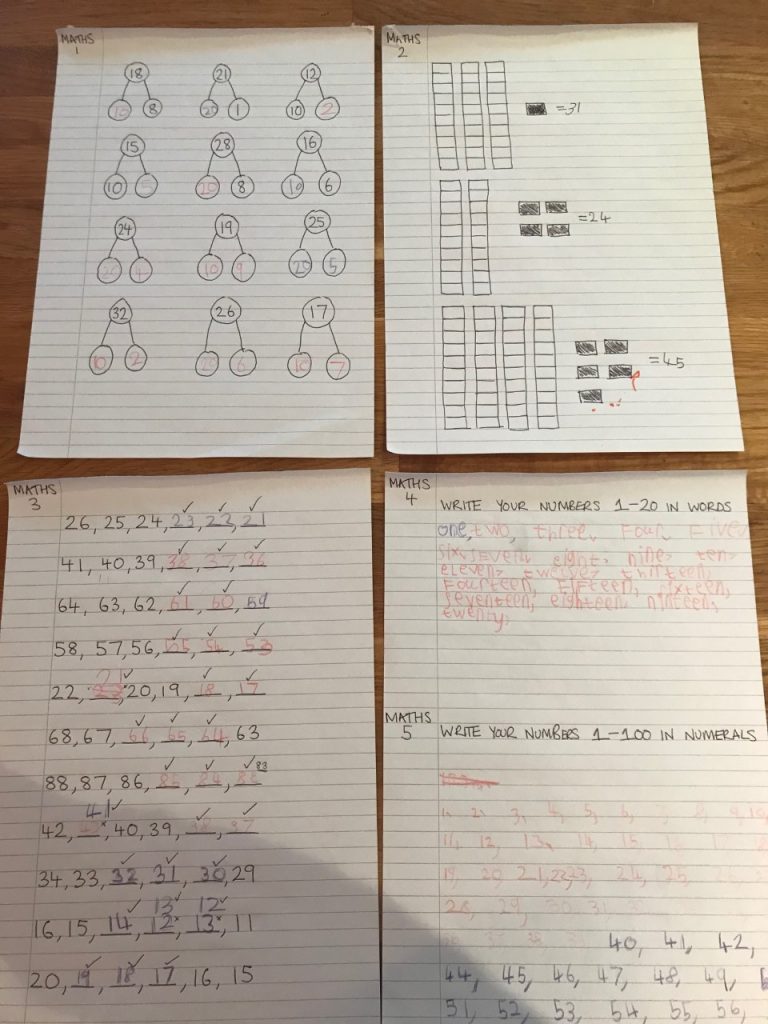 MATHS
1
18 21 12
10 8 20 1 10 2
15 28 16
10 5 20 8 10 6
24 19 25
20 4 10 9 20 5
32 26 17
10 2 20 6 10 7
MATHS
2
=31
=24
=45
MATHS
3
26, 25, 24, 23, 22, 21
41, 40, 39, 38, 37, 36
64, 63, 62, 61, 60, 59
58, 57, 56, 55, 54, 53
21
22, 20, 19, 18, 17
68, 67, 66, 65, 64, 63
83
88, 87, 86, 85, 84
41
42, 40, 39, 38, 37
34, 33, 32, 31, 30, 29
13 12
16, 15, 14, 12, 13, 11
20, 19, 18, 17, 16, 15
MATHS
4
WRITE YOUR NUMBERS 1-20 IN WORDS
one, two, three, Four Five,
six, seven, eight, nine, ten,
eleven, twelve, thirteen,
Fourteen, Fifteen, sixteen,
seventeen, eighteen, ninteen,
twenty,
MATHS
5
WRITE YOUR NUMBERS 1-100 IN NUMERALS
1, 2, 3, 4, 5, 6, 8, 9, 10,
11, 12, 13, 14, 15,
19, 20, 21, 22, 23, 24, 25,
28, 29, 30, 31
40, 41, 42,
44, 45, 46, 47, 48, 49,
51, 52, 53, 54, 55, 56,